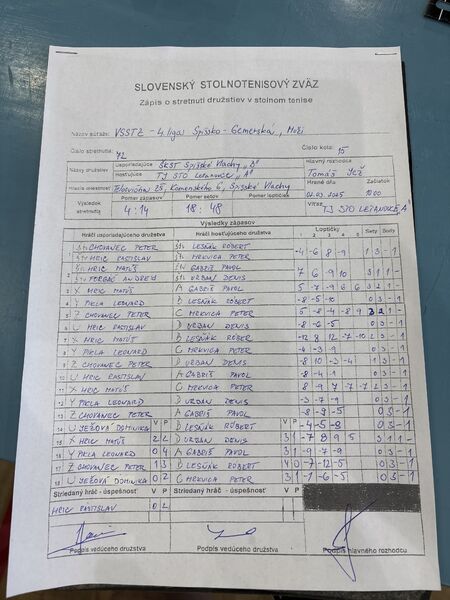 SLOVENSKÝ STOLNOTENISOVÝ ZVÄZ
Zápis o stretnutí družstiev v stolnom tenise
Názov súťaže: VSSTZ - 4. liga Spišsko - Gemerská, Muži
Číslo stretnutia: 72 Číslo kola: 15
Názov družstiev Usporiadajúce ŠKST Spišské Vlachy "B" Hlavný rozhodca
Hosťujúce TJ STO Letanovce "A" Tomáš
Hracia miestnosť: Telocvičňa ZŠ, Komenského 6, Spišské Vlachy Hrané dňa Začiatok
Výsledok stretnutia Pomer zápasov Pomer setov Pomer loptičiek 2025 10:00
4:14 18:48 Víťaz TJ STO LETANOVCE "A"
Výsledky zápasov
Hráči usporiadajúceho družstva Hráči hosťujúceho družstva Loptičky Sety Body
1 CHOVANEC PETER LESŇÁK RÓBERT -4 -6 8 -9 1 3 - 1
HRIC RASTISLAV MRKVICA PETER
2 HRIC MATÚŠ GABRIŠ PAVOL 7 6 -9 10 3 1 1 -
FORGÁČ ANDREJ URBAN DENIS
3 X HRIC MATÚŠ A GABRIŠ PAVOL
4 Y PIKLA LEONARD B LESŇÁK RÓBERT -8 -5 -10 0 3 - 1
5 Z CHOVANEC PETER C MRKVICA PETER
6 U HRIC RASTISLAV D URBAN DENIS -8 -6 -5 0 3 - 1
7 X HRIC MATÚŠ B LESŇÁK RÓBERT
8 Y PIKLA LEONARD C MRKVICA PETER -4 -3 -9 0 3 - 1
9 Z CHOVANEC PETER D URBAN DENIS
10 U HRIC RASTISLAV A GABRIŠ PAVOL -8 -4 -1 0 3 - 1
11 X HRIC MATÚŠ C MRKVICA PETER
12 Y PIKLA LEONARD D URBAN DENIS -3 -7 -9 0 3 - 1
13 Z CHOVANEC PETER A GABRIŠ PAVOL -8 -9 -5 0 3 - 1
14 U JEŽOVÁ DOMINIKA V P B LESŇÁK RÓBERT V P
15 X HRIC MATÚŠ 2 2 D URBAN DENIS 3 1 -7 8 9 5 3 1 1 -
16 Y PIKLA LEONARD 0 4 A GABRIŠ PAVOL 3 1
17 Z CHOVANEC PETER 1 3 B LESŇÁK RÓBERT 4 0 -7 -12 -5 0 3 - 1
18 U JEŽOVÁ DOMINIKA 0 2 C MRKVICA PETER 3 1 -1 -6 -5 0 3 - 1
Striedaný hráč - úspešnosť V P Striedaný hráč - úspešnosť V P
HRIC RASTISLAV 0 2
Podpis vedúceho družstva Podpis vedúceho družstva Podpis hlavného rozhodcu